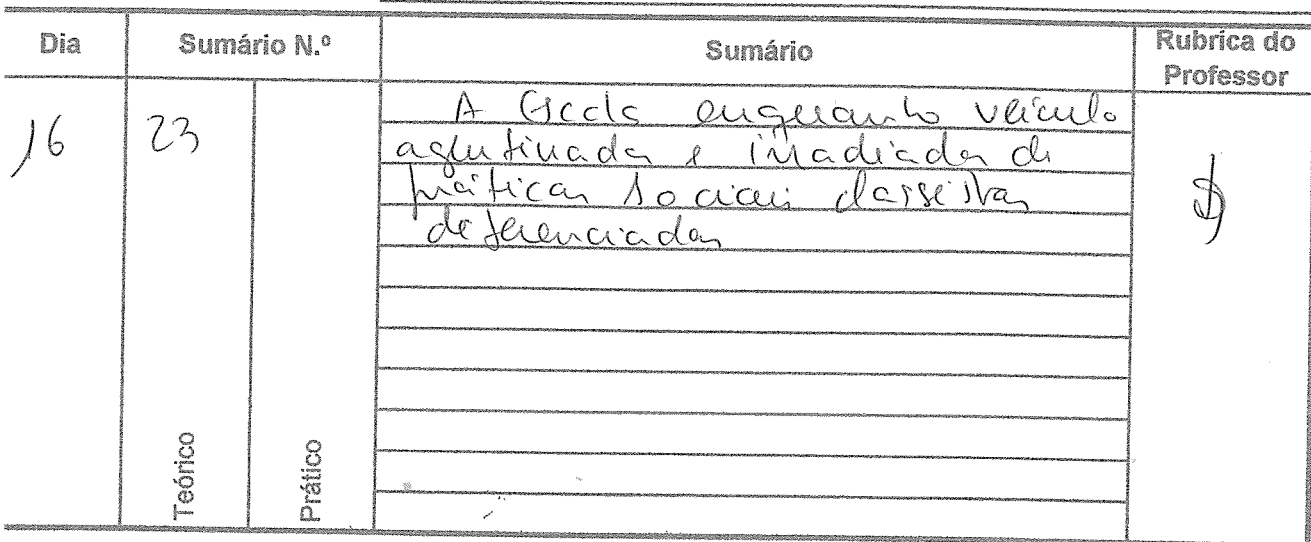 Dia Sumário N.º Sumário Rubrica do Professor
16 23
A Escola enquanto veículo
aglutinador e irradiador de
práticas sociais classistas
diferenciadas
Teórico Prático